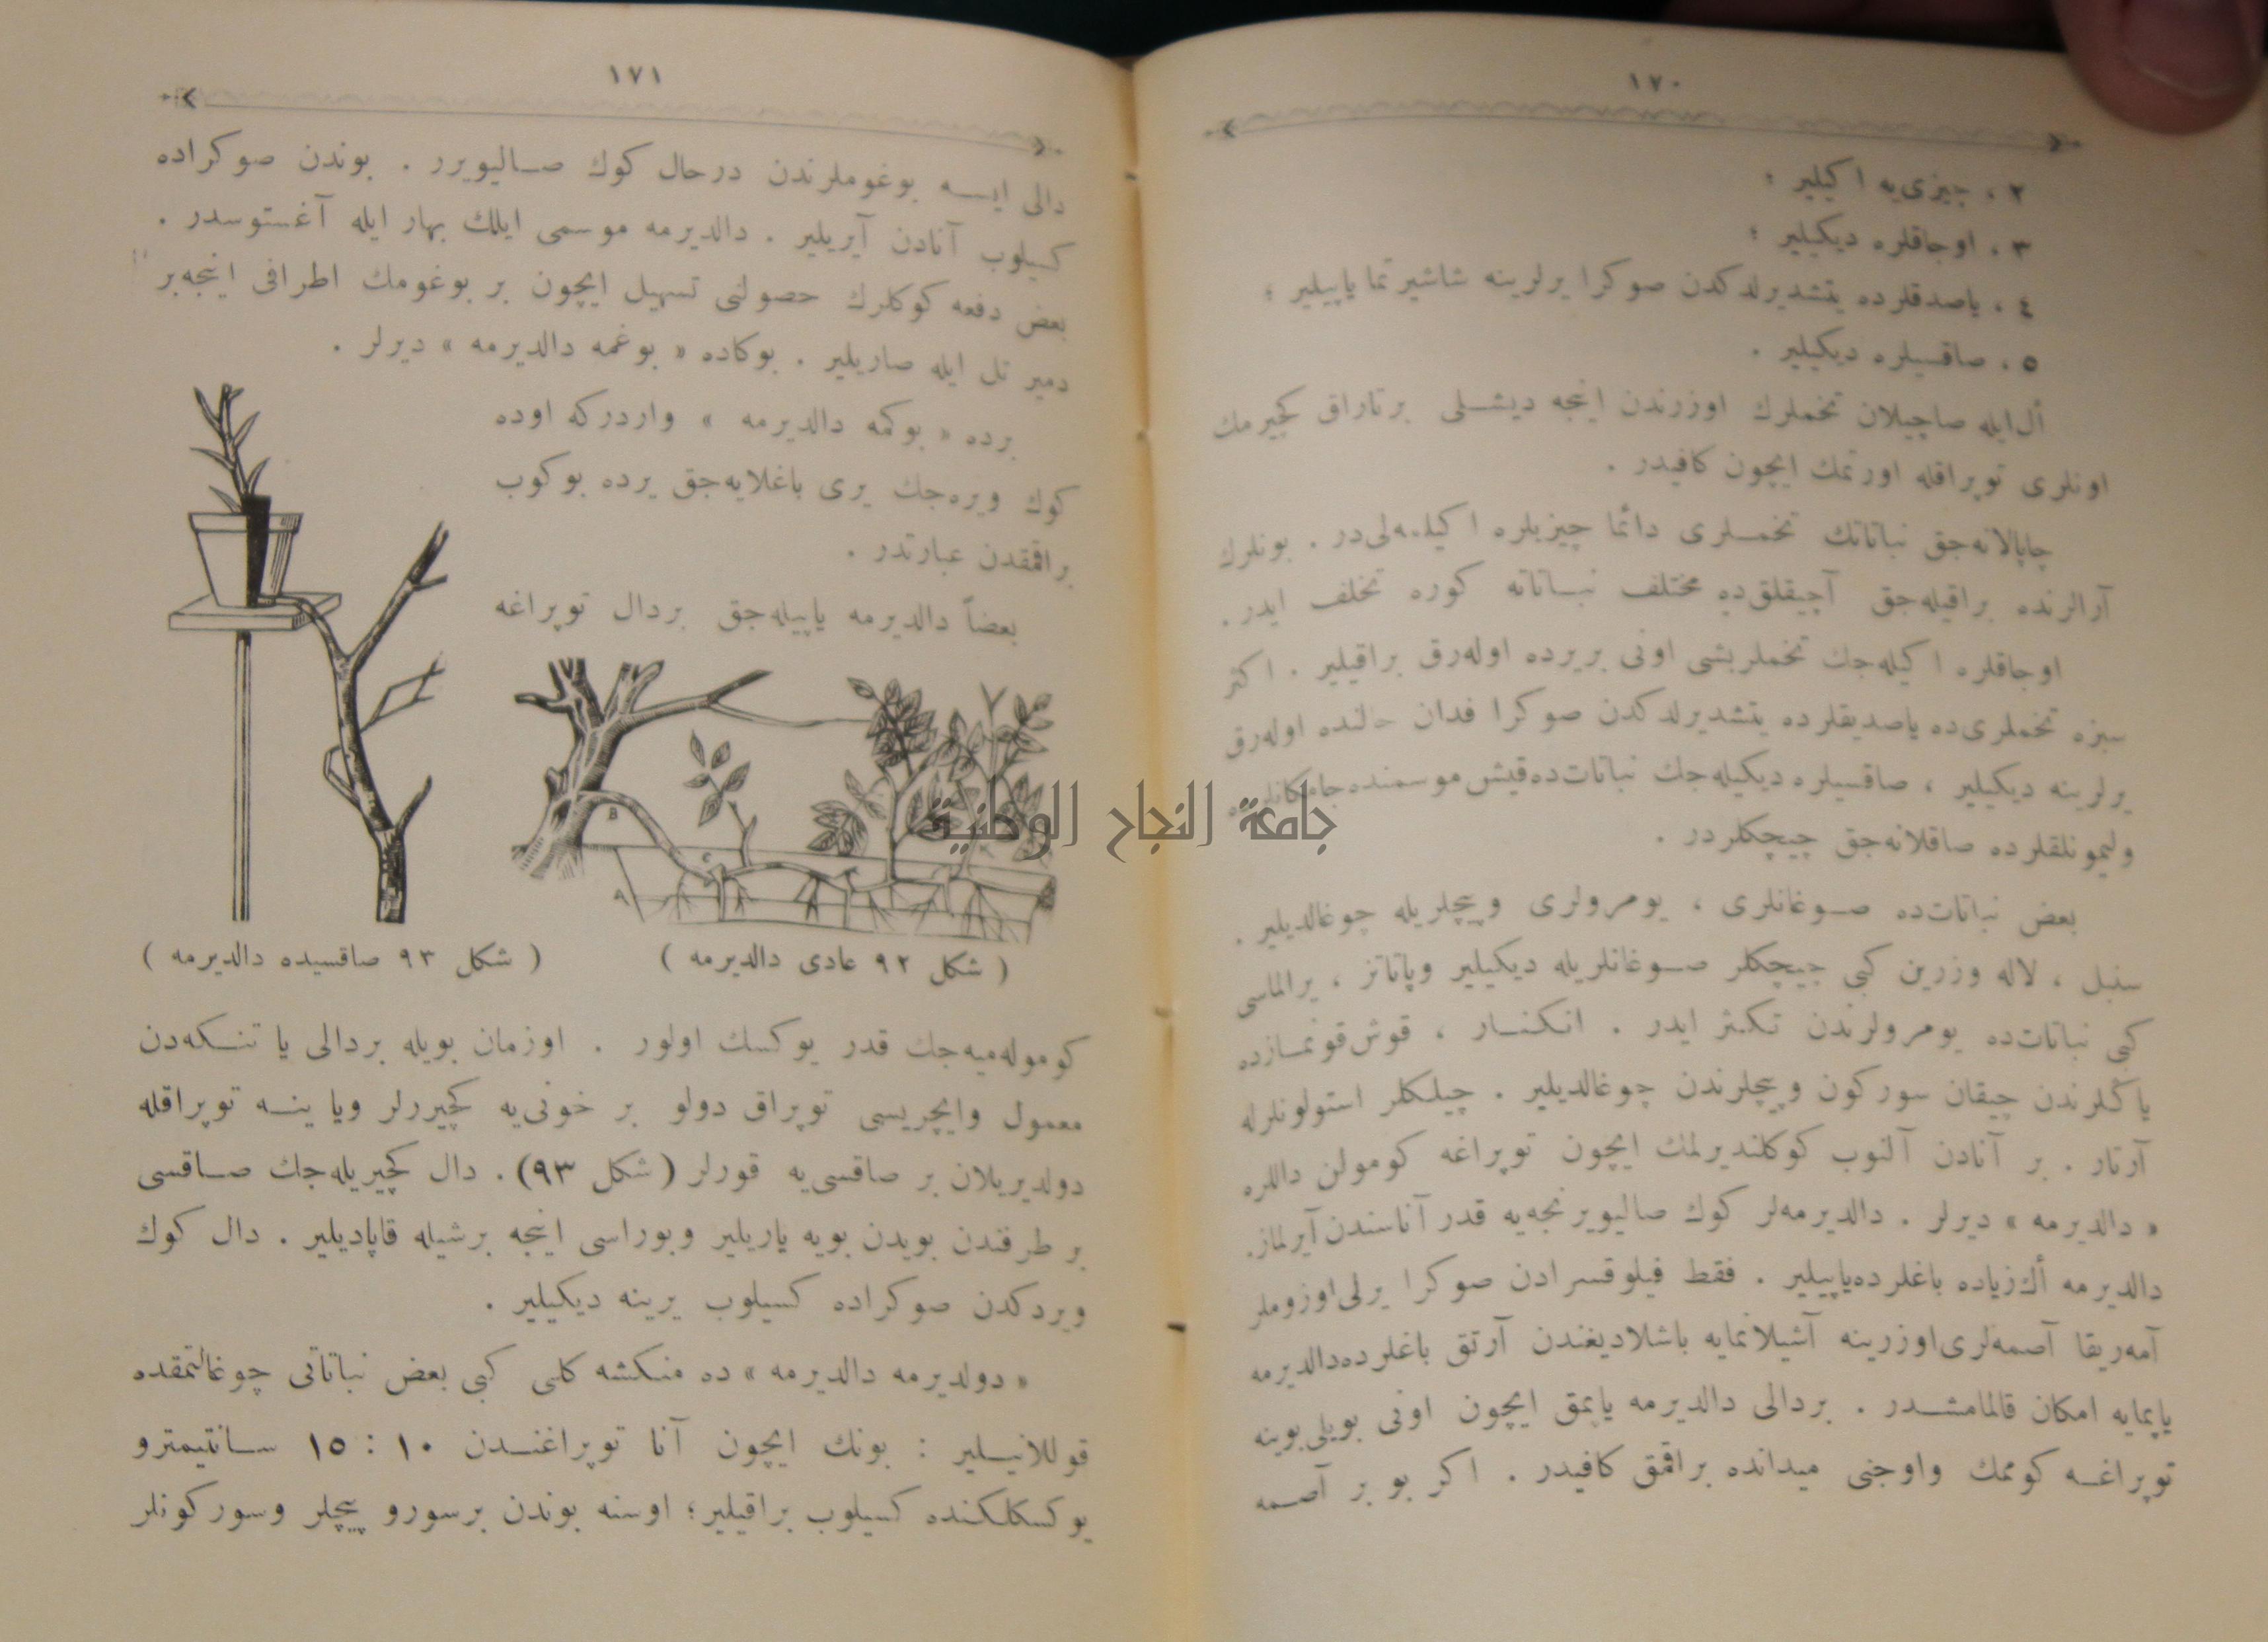 ١٧٠
٢ ، چیزی‌یه اکیلیر ؛
٣ ، اوجاقلره دیکیلیر ؛
٤ ، یاصدقلرده یتشدیرلدکدن صوکرا یرلرینه شاشیرتما یاپیلیر ؛
٥ ، صاقسیلره دیکیلیر .
أل‌ایله صاچیلان تخملرك اوزرندن اینجه دیشلی برتاراق کچیرمك
اونلری توپراقله اورتمك ایچون کافیدر .
چاپالانه‌جق نباتاتك تخملری دائما چیزیلره اکیلمه‌لی‌در . بونلرك
آرالرنده براقیله‌جق آچیقلق‌ده مختلف نباتاته کوره تخلف ایدر .
اوجاقلره اکیله‌جك تخملر بشی اونی بریرده اوله‌رق براقیلیر . اکثر
سبزه تخملری‌ده یاصدیقلرده یتشدیرلدکدن صوکرا فدان حالنده اوله‌رق
یرلرینه دیکیلیر ، صاقسیلره دیکیله‌جك نباتات‌ده‌قیش موسمنده
ولیمونلقلرده صاقلانه‌جق چیچکلردر .
بعض نباتات‌ده صوغانلری ، یومرولری وپیچلریله چوغالدیلیر .
سنبل ، لاله وزرین کبی چیچکلر صوغانلریله دیکیلیر وپاتاتز ، یرالماسی
کبی نباتات‌ده یومرولرندن تکثر ایدر . انکنار ، قوش‌قونمازده
یاڭلرندن چیقان سورکون وپیچلرندن چوغالدیلیر . چیلکلر استولونلرله
آرتار . بر آنادن آلنوب کوکلندیرلمك ایچون توپراغه کومولن داللره
« دالدیرمه » دیرلر . دالدیرمه‌لر کوك صالیویرنجه‌یه قدر آناسندن آیرلماز.
دالدیرمه أك‌زیاده باغلرده‌یاپیلیر . فقط فیلوقسرادن صوکرا یرلی‌اوزوملر
آمه‌ریقا آصمه‌لری‌اوزرینه آشیلانمایه باشلادیغندن آرتق باغلرده‌دالدیرمه
یاپمایه امکان قالمامشدر . بردالی دالدیرمه یاپمق ایچون اونی بویلی‌بوینه
توپراغه کوممك واوجنی میدانده براقمق کافیدر . اکر بو بر آصمه
١٧١
دالی ایسه بوغوملرندن درحال کوك صالیویرر . بوندن صوکراده
کسیلوب آنادن آیریلیر . دالدیرمه موسمی ایلك بهار ایله آغستوسدر .
بعض دفعه کوکلرك حصولنی تسهیل ایچون بر بوغومك اطرافی اینجه‌بر
دمیر تل ایله صاریلیر . بوکاده « بوغمه دالدیرمه » دیرلر .
برده « بوکمه دالدیرمه » واردرکه اوده
کوك ویره‌جك یری باغلایه‌جق یرده بوکوب
براقمقدن عبارتدر .
بعضاً دالدیرمه یاپیله‌جق بردال توپراغه
B
C
A
( شکل ٩٢ عادی دالدیرمه )
( شکل ٩٣ صاقسیده دالدیرمه )
کوموله‌میه‌جك قدر یوکسك اولور . اوزمان بویله بردالی یا تنکه‌دن
معمول وایچریسی توپراق دولو بر خونی‌یه کچیررلر ویا ینه توپراقله
دولدیریلان بر صاقسی‌یه قورلر (شکل ٩٣) . دال کچیریله‌جك صاقسی
بر طرفندن بویدن بویه یاریلیر وبوراسی اینجه برشیله قاپادیلیر . دال کوك
ویردکدن صوکراده کسیلوب یرینه دیکیلیر .
« دولدیرمه دالدیرمه » ده منکشه کلی کبی بعض نباتاتی چوغالتمقده
قوللانیلیر : بونك ایچون آنا توپراغندن ١٠ : ١٥ سانتیمترو
یوکسکلکنده کسیلوب براقیلیر؛ اوسنه بوندن برسورو پیچلر وسورکونلر
جامعة النجاح الوطنية